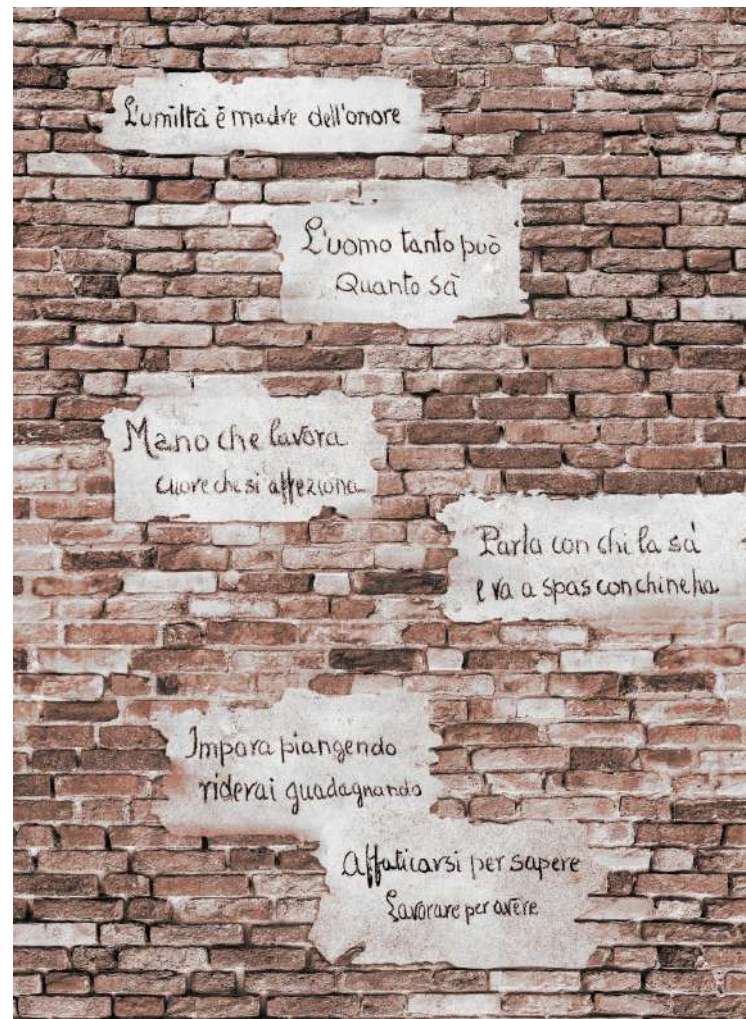 L'umiltà è madre dell'onore
L'uomo tanto può
Quanto sà
Mano che lavora
cuore che si affeziona
Parla con chi la sà
e va a spas con chi ne ha
Impara piangendo
riderai guadagnando
Affaticarsi per sapere
Lavorare per avere